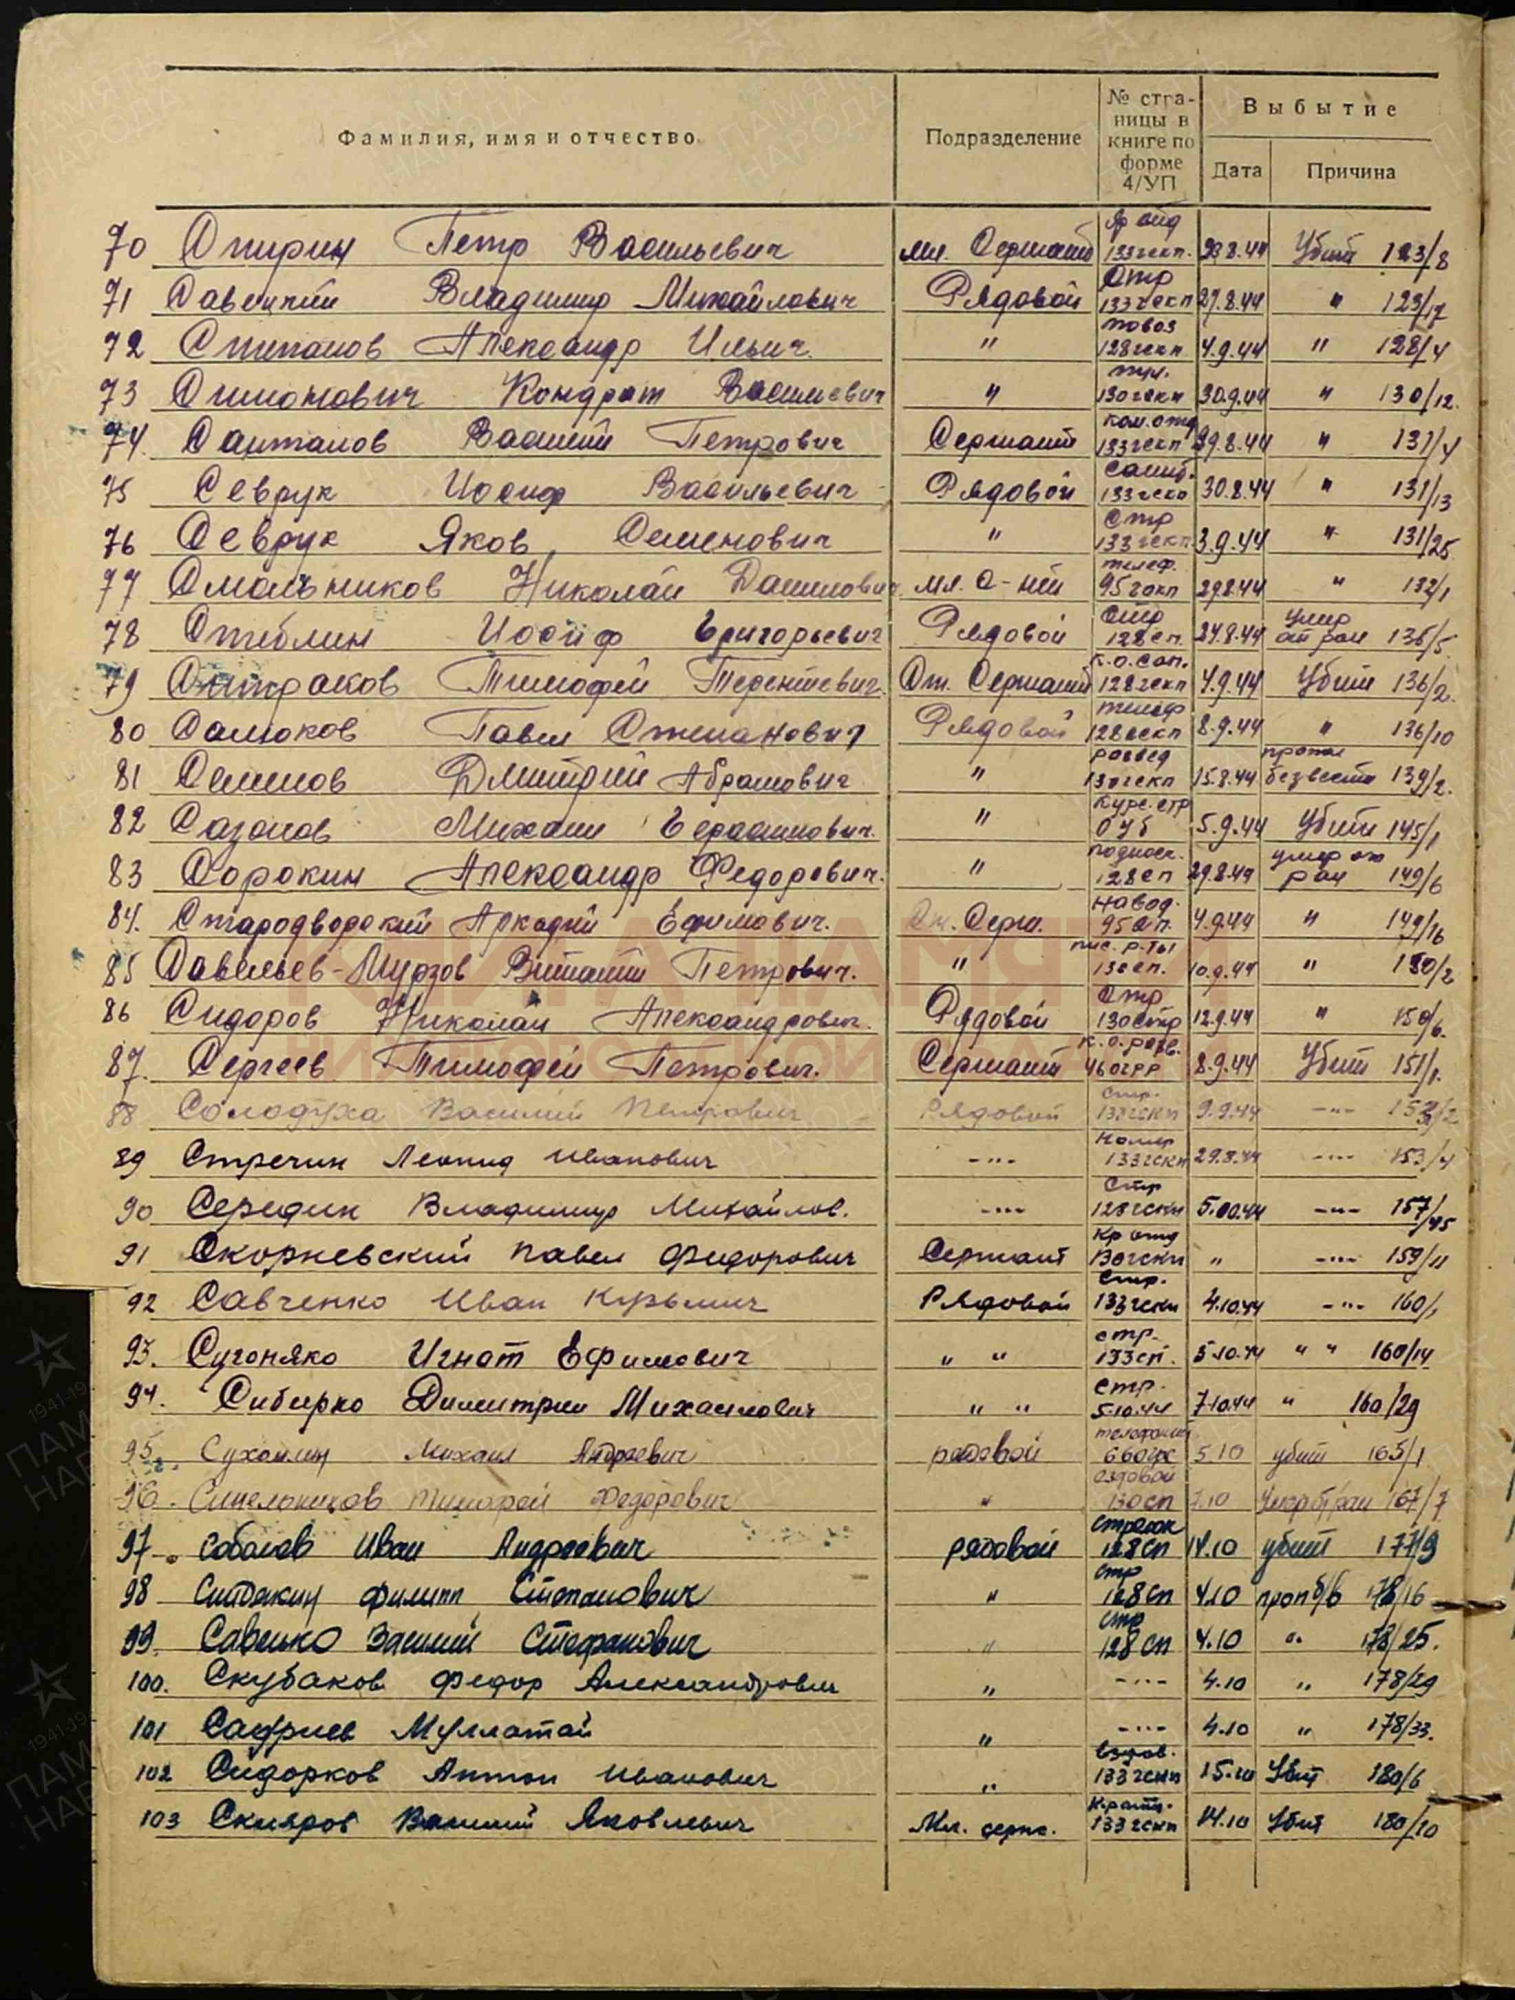 Фамилия, имя и отчество
Подразделение
№ страницы в книге по форме 4/УП
Выбытие
Дата
Причина
70 Спирин Петр Васильевич мл. Сержант 133 гскп. 23.8.44 Убит 123/8
71 Савецкий Владимир Михайлович Рядовой стр 133 гскп 27.8.44 " 123/17
72 Степанов Александр Ильич " повоз 128 гскп 4.9.44 " 128/4
73 Симонович Кондрат Васильевич " 130 гскп 30.9.44 " 130/12.
74. Санталов Василий Петрович Сержант ком. отд 133 гскп 29.8.44 " 131/4
75 Севрук Иосиф Васильевич Рядовой 133 гскп 30.8.44 " 131/13
76 Севрук Яков Семенович " Стр 133 гскп 3.9.44 " 131/25
77 Смольников Николай Данилович мл. С-нт телеф. 95 гскп 29.8.44 " 132/1
78 Стеблин Иосиф Григорьевич Рядовой Стр 128 сп. 24.8.44 умер от ран 135/5.
79 Тимофей Терентьевич Ст. Сержант к.о. сап. 128 гскп 4.9.44 Убит 136/2.
80 Салюков Павел Степанович Рядовой телеф 128 гскп 8.9.44 " 136/10
81 Семенов Дмитрий Абрамович " развед 130 гскп 15.8.44 пропал безвести 139/2.
82 Сазонов Михаил Герасимович. " Курс. стр ОУБ 5.9.44 Убит 145/1
83 Сорокин Александр Федорович. " поднос. 128 сп 29.8.44 умер от ран 149/6
84. Стародворский Аркадий Ефимович. Ст. Серж. Навод. 95 сп. 4.9.44 " 149/16
85 Савельев-Мурзов Виталий Петрович. " пис. р-ты 130 сп. 10.9.44 " 150/2
86 Сидоров Николай Александрович. Рядовой Стр 130 12.9.44 " 150/6.
87. Сергеев Тимофей Петрович. Сержант к.о. разв. 46 огрр 8.9.44 Убит 151/1.
88 Солодуха Василий Петрович Рядовой стр. 133 гскп 9.9.44 -"- /2
89 Стречин Леонид Иванович -"- Номер 133 гскп 29.8.44 -"- 153/4
90 Середин Владимир Михайлов. -"- Стр 128 гскп 5.10.44 -"- 157/45
91 Скорневский Павел Федорович Сержант Кр отд гскп " -"- 159/11
92 Савченко Иван Кузьмич Рядовой Стр. 133 гскп 4.10.44 -"- 160/1
93. Сугоняко Игнат Ефимович " " стр. 133 сп. 5.10.44 " " 160/14
94. Сибирко Димитрий Михайлович " " стр. 5.10.44 7.10.44 " 160/29
95. Сухомлин Михаил Андреевич рядовой телефонист 5.10 убит 165/1
96. Синельников Тимофей Федорович " ездовой 130 сп 7.10 Умер от ран 167/7
97. Соболев Иван Андреевич рядовой стрелок 128 сп 14.10 убит 177/9
98 Ситдякин Филипп Степанович " стр 128 сп 4.10 проп б/в 178/16
99. Савенко Василий Стефанович " стр 128 сп 4.10 " 178/25.
100. Скубаков Федор Александрович " -"- 4.10 " 178/29
101 Муллатай " -"- 4.10 " 178/33.
102 Сидорков Антон Иванович " ездов. 133 гскп 15.10 Убит 180/6
103 Скляров Василий Яковлевич Мл. серж. 133 гскп 14.10 Убит 180/10